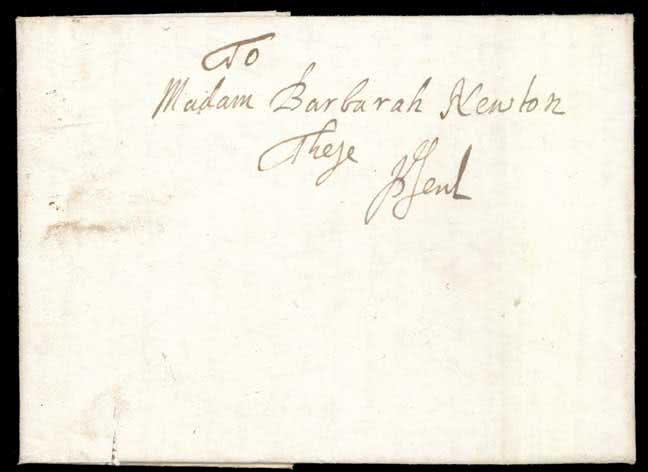 To
Madam Barbarah Newton
Theſe
pſent